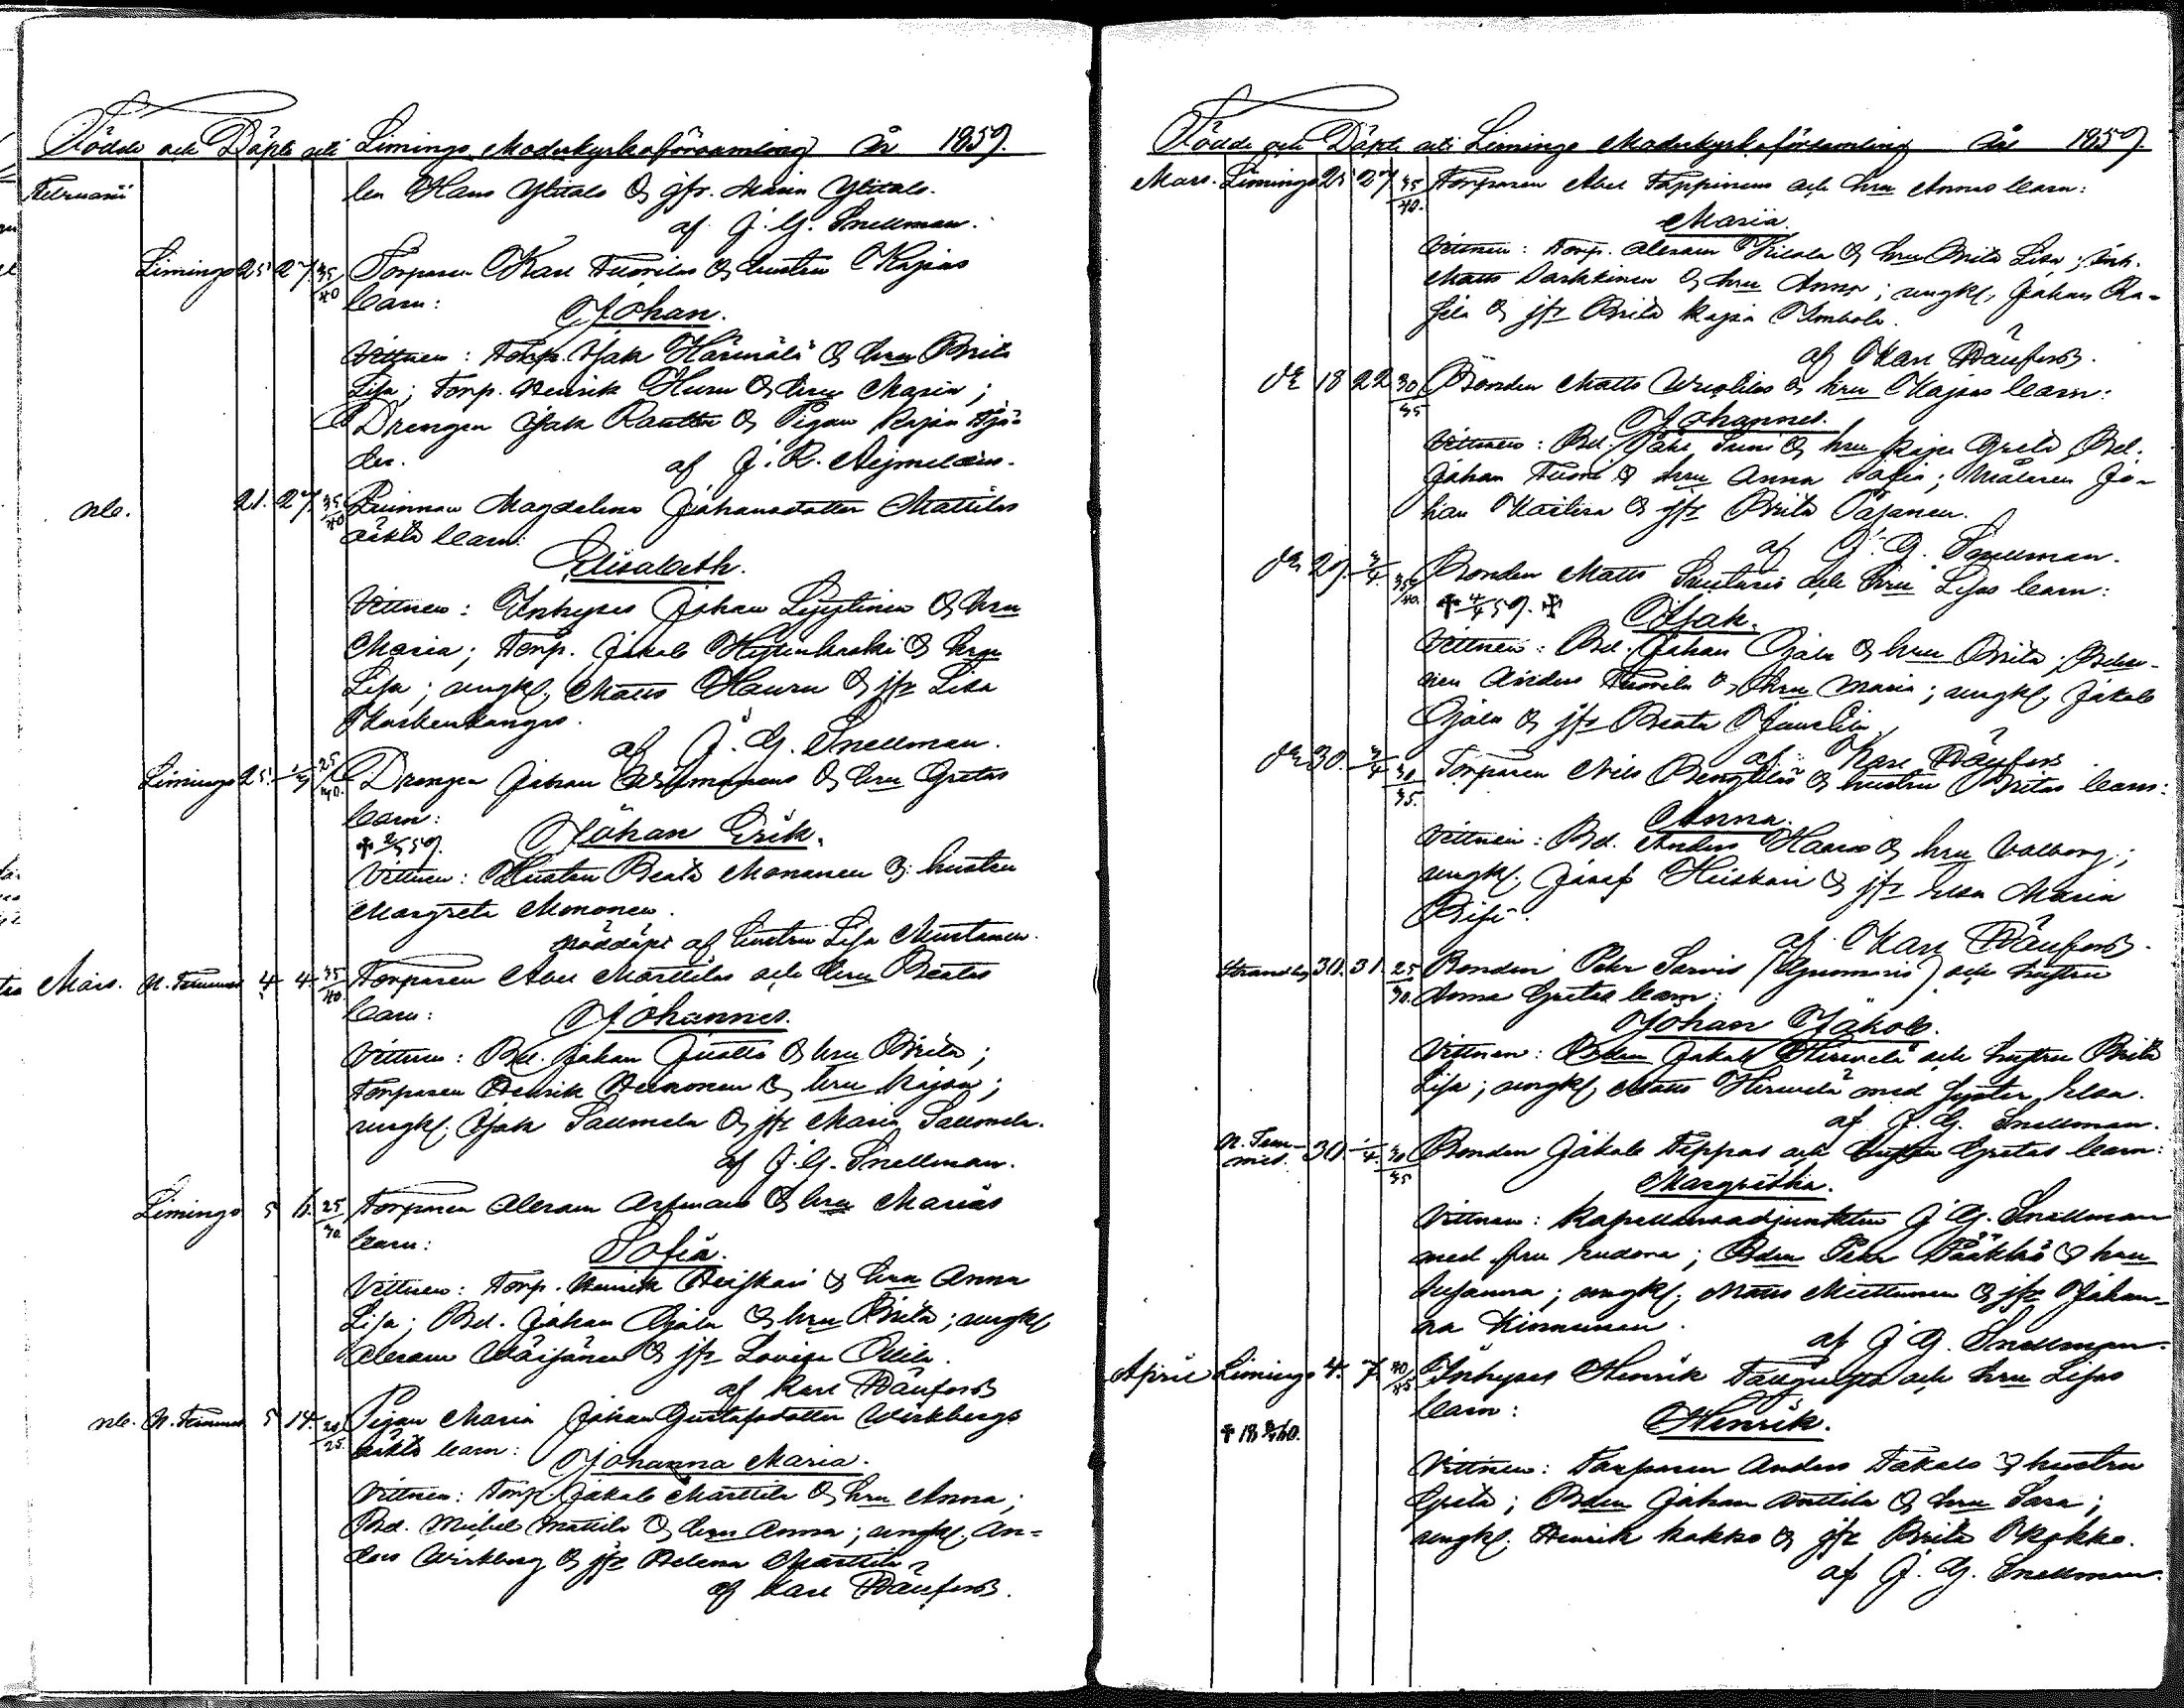 Födde och Döpte uti Limingo Moderkyrkoförsamling År 1859.
Februarii
len Hans Ylitalo & jfr. Maria Ylitalo.
af J. G. Snellman.
Limingo 25 27 35/40 Torparen Karl Tuorilas & hustru Kajsas
barn: Johan.
Vittnen: Torp. Isak Härmälä & hru Brita
Lisa; Torp. Henrik Huru & hru Maria;
Drengen Isak Rautio & Pigan Kajsa
af J. R.
nb. 21. 27. 35/40 Qvinnan Magdalena Johansdotter Mattilas
oäkta barn:
Elisabeth.
Vittnen: Inhyses Johan Lyytinen & hru
Maria; Torp. Jakob & hru
Lisa; ungkl. Matts Hauru & jfr Lisa
Koskenkangas.
af J. G. Snellman.
Limingo 25. 1/3 25/30. Drengen Johan & hru Gretas
barn:
† 2/5 59. Johan Erik.
Vittnen: Hustru Beata Mononen & hustru
Margreta Mononen.
nöddöpt af hustru Lisa Mustonen.
Mars. N. Temmes 4 4 35/40. Torparen Abel Marttilas och hru Beatas
barn: Johannes.
Vittnen: Bd. Johan & hru Brita;
Torparen Henrik & hru Kajsa;
ungkl. Isak Saumela & jfr Maria Saumela.
af J. G. Snellman.
Limingo 5 6. 25/30. Torparen Abram & hru Marias
barn: Sofia.
Vittnen: Torp. Henrik Heiskari & hru Anna
Lisa; Bd. Johan Ojala & hru Brita; ungkl
Abram Wäisänen & jfr Lovisa Ollila.
af Karl Dänfors
nb. N. Temmes 5 14. 20/25. Pigan Maria Johan Gustafsdotter Wirkbergs
oäkta barn: Johanna Maria.
Vittnen: Torp Jakob Marttila & hru Anna;
Bd. Michel Mattila & hru Anna; ungkl. An=
ders Wirkberg & jfr Helena Marttila
af Karl Dänfors.
Födde och Döpte uti Limingo Moderkyrkoförsamling År 1859.
Mars. Limingo 25 27 35/40. Torparen Abel Tappinens och hru Annas barn:
Maria.
Vittnen: Torp. Abram Kiiala & hru Brita Lisa; Inh.
Matts Parkkinen & hru Anna; ungkl. Johan
& jfr Brita Kajsa
af Karl Dänfors.
de 18 22 30/35 Bonden Matts & hru Kajsas barn:
Johannes.
Vittnen: Bd. & hru Kajsa Greta Bd.
Johan Tuori & hru Anna Sofia; Målaren Jo-
han & jfr Brita Pajanen.
af J. G. Snellman.
de 29. 3/4. 35/40. Bonden Matts och hru Lisas barn:
† 4/4 59. † Isak.
Vittnen: Bd. Johan Ojala & hru Brita; Bon-
den Anders Tuorila & hru Maria; ungkl. Jakob
Ojala & jfr Beata
af Karl Dänfors
de 30. 3/4 30/35. Torparen Nils & hustru Britas barn:
Anna.
Vittnen: Bd. Anders & hru Valborg;
ungkl. Josef Heiskari & jfr Elsa Maria
af Karl Dänfors.
30. 31. 25/30. Bonden Petr Sarvis och hustru
Anna Gretas barn:
Johan Jakob.
Vittnen: Bden Jakob Hirvelä och hustru Brita
Lisa; ungkl. Matts Hirvelä med syster Elsa.
af J. G. Snellman.
N. Tem-
mes. 30. 1/4. 30/35 Bonden Jakob Teppos och hustru Gretas barn:
Margretha.
Vittnen: Kapellansadjunkten J. G. Snellman
med fru Eudora; Bden Pehr & hru
Susanna; ungkl. Matts Miettunen & jfr Johan-
na Kinnunen.
af J. G. Snellman.
April Limingo 4. 7. 40/45 Inhyses Henrik och hru Lisas
barn: Henrik.
Vittnen: Torparen Anders Takalo & hustru
Greta; Bden Johan Anttila & hru Sara;
ungkl. Henrik Kokko & jfr Brita Kokko.
af J. G. Snellman.